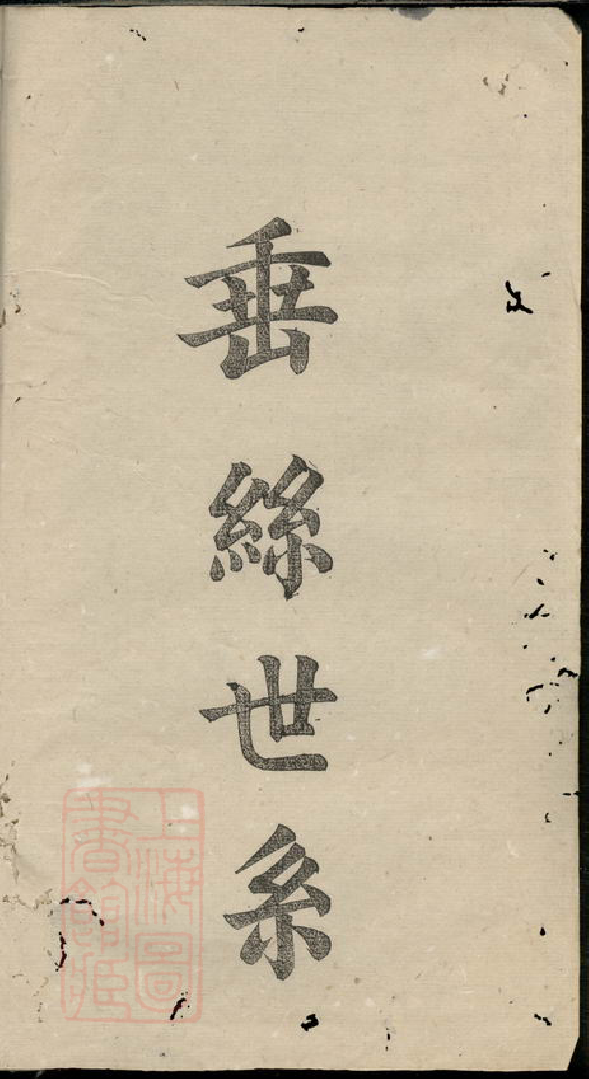 垂絲世系
上海圖
書館藏